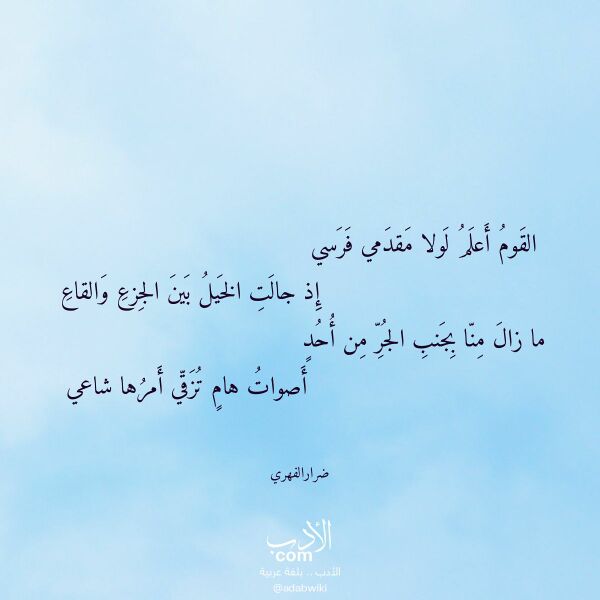 القَومُ أَعلَمُ لَولا مَقدَمي فَرَسي
إِذ جالَتِ الخَيلُ بَينَ الجِزعِ وَالقاعِ
ما زالَ مِنّا بِجَنبِ الجُرِّ مِن أُحُدٍ
أَصواتُ هامٍ تُزَقّي أَمرُها شاعي
ضرارالفهري
الأدب
.com
الأدب .. بلغة عربية
@adabwiki